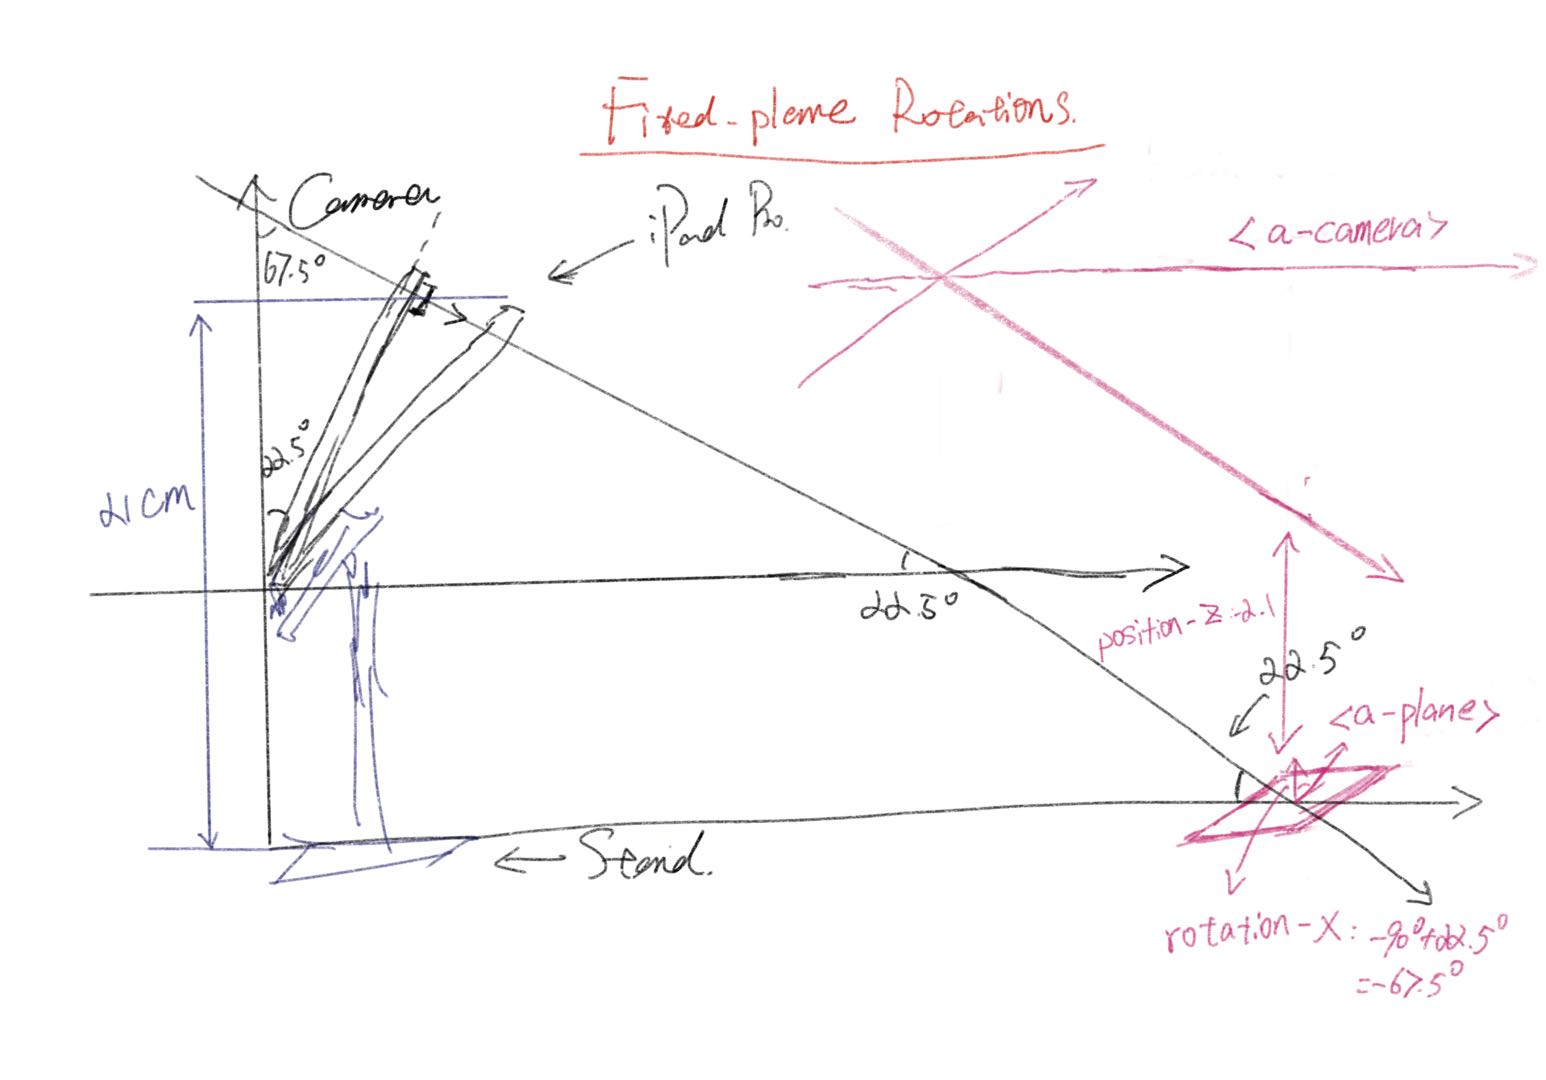 Fixed-plane Rotations.
Camera
iPad Pro.
<a-camera>
67.5°
22.5°
21cm
22.5°
position-z:-2.1
22.5°
<a-plane>
Stand.
rotation-x: -90°+22.5°
=-67.5°